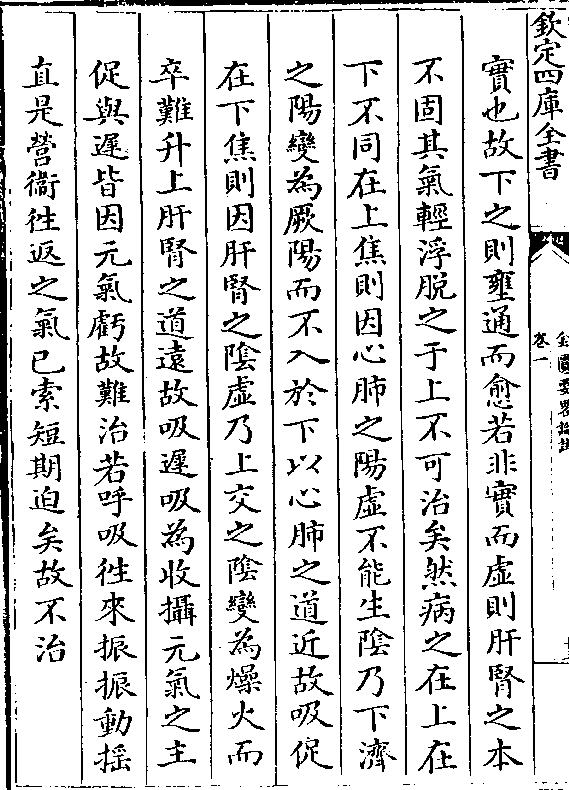 欽定四庫全書
卷一
實也故下之則壅通而愈若非實而虛則肝腎之本
不固其氣輕浮脫之于上不可治矣然病之在上在
下不同在上焦則因心肺之陽虛不能生陰乃下濟
之陽變為厥陽而不入於下以心肺之道近故吸促
在下焦則因肝腎之陰虛乃上交之陰變為燥火而
卒難升上肝腎之道遠故吸遲吸為收攝元氣之主
促與遲皆因元氣虧故難治若呼吸徃來振振動搖
直是營衞徃返之氣已索短期迫矣故不治